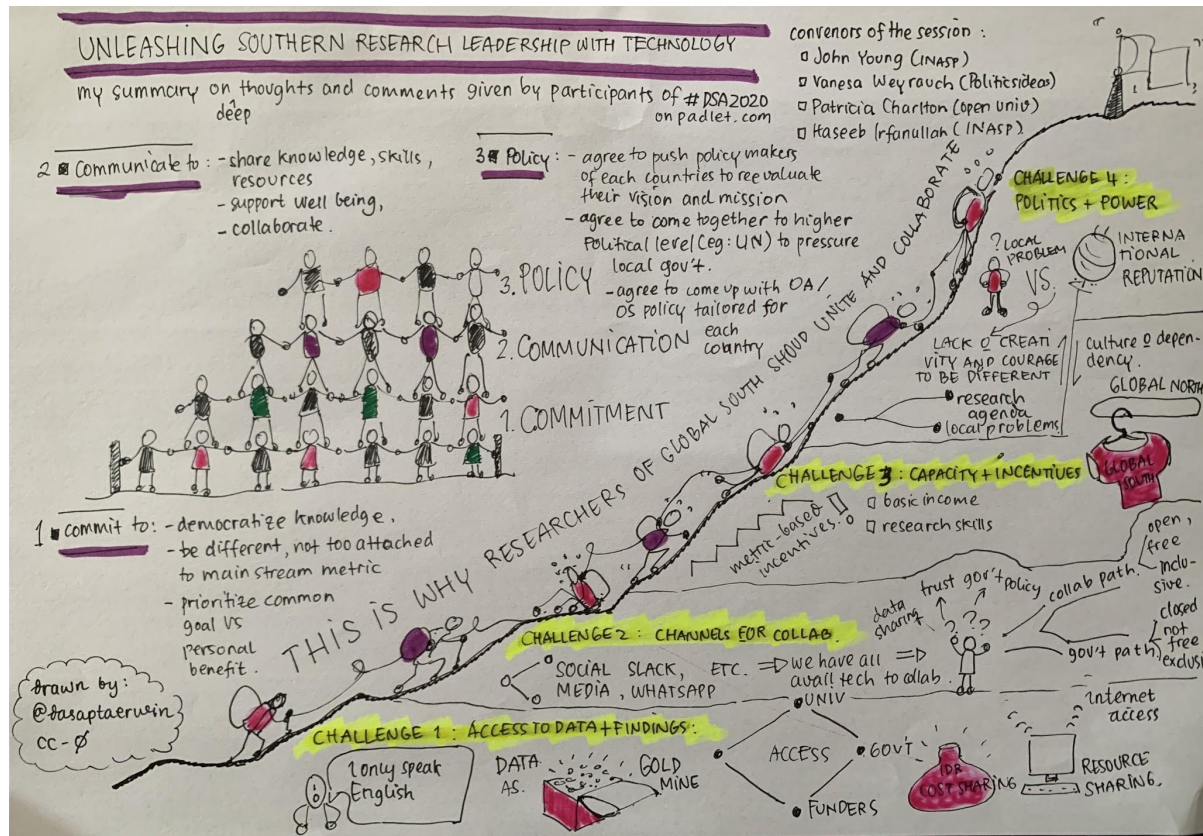 UNLEASHING SOUTHERN RESEARCH LEADERSHIP WITH TECHNOLOGY
my summary on thoughts and comments given by participants of #DSA2020
deep
on padlet.com
convenors of the session :
John Young (INASP)
Vanesa Weyrauch (Politicsideas)
Patricia Charlton (open univ)
Haseeb Irfanullah (INASP)
2 Communicate to : - share knowledge, skills,
resources
- support well being,
- collaborate.
3 Policy : - agree to push policy makers
of each countries to reevaluate
their vision and mission
- agree to come together to higher
political level (eg: UN) to pressure
local gov't.
- agree to come up with OA/
OS policy tailored for
each
country
3. POLICY
2. COMMUNICATION
1. COMMITMENT
1 commit to : - democratize knowledge,
- be different, not too attached
to main stream metric
- prioritize common
goal VS
personal
benefit.
THIS IS WHY RESEARCHERS OF GLOBAL SOUTH SHOUD UNITE AND COLLABORATE
drawn by:
@dasaptaerwin
CC-Ø
CHALLENGE 4 :
POLITICS + POWER
?
LOCAL
PROBLEM
VS.
INTERNA
TIONAL
REPUTATION
LACK O CREATI
VITY AND COURAGE
TO BE DIFFERENT
culture o depen-
dency.
research
agenda
local problems
GLOBAL NORTH
GLOBAL
SOUTH
CHALLENGE 3 : CAPACITY + INCENTIVES
basic income
research skills
metric-based
incentives.
CHALLENGE 2 : CHANNELS FOR COLLAB.
SOCIAL SLACK, ETC. ⇒ we have all ⇒
MEDIA, WHATSAPP avail tech to collab.
data
sharing
trust gov't policy
? ? ?
collab path.
open,
free
inclu-
sive.
gov't path
closed
not
free
exclusi
CHALLENGE 1 : ACCESS TO DATA + FINDINGS:
I only speak
English
DATA
AS.
GOLD
MINE
UNIV
ACCESS
GOV'T
FUNDERS
IDR
COST SHARING
internet
access
RESOURCE
SHARING.